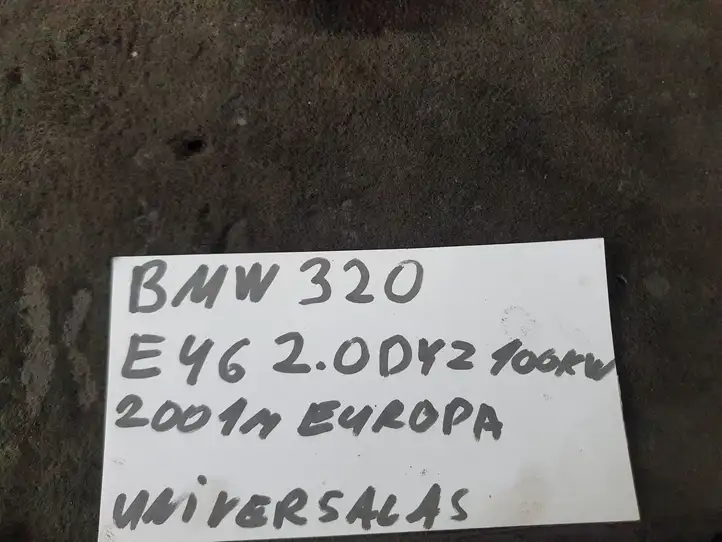 BMW 320
E46 2.0DYZ 100KW
2001m EUROPA
UNiVERSALAS